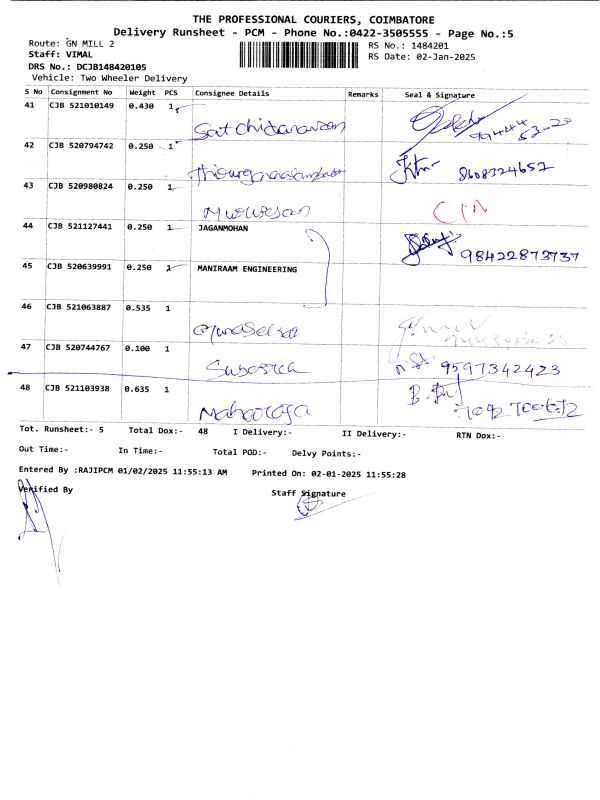 THE PROFESSIONAL COURIERS, COIMBATORE
Delivery Runsheet - PCM - Phone No.:0422-3505555 - Page No.:5
Route: GN MILL 2
RS No.: 1484201
Staff: VIMAL
RS Date: 02-Jan-2025
DRS No.: DCJB148420105
Vehicle: Two Wheeler Delivery
S No Consignment No Weight PCS Consignee Details Remarks Seal & Signature
41 CJB 521010149 0.430 1
42 CJB 520794742 0.250 1
8608324657
43 CJB 520980824 0.250 1
Murugesan
44 CJB 521127441 0.250 1 JAGANMOHAN
98422873737
45 CJB 520639991 0.250 1 MANIRAAM ENGINEERING
46 CJB 521063887 0.535 1
47 CJB 520744767 0.100 1
9597342423
48 CJB 521103938 0.635 1
Maharaja
Tot. Runsheet:- 5 Total Dox:- 48 I Delivery:- II Delivery:- RTN Dox:-
Out Time:- In Time:- Total POD:- Delvy Points:-
Entered By :RAJIPCM 01/02/2025 11:55:13 AM Printed On: 02-01-2025 11:55:28
Verified By Staff Signature